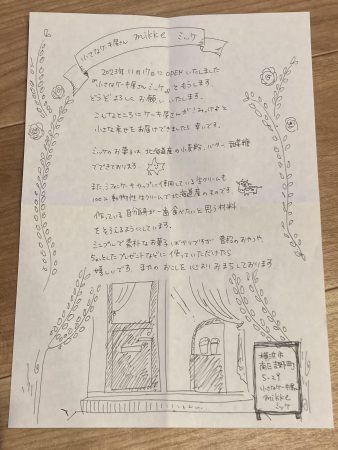 小さなケーキ屋さん mikke ミッケ
2023年11月17日にOPENいたしました
"小さなケーキ屋さん ミッケ" ともうします。
どうぞよろしくお願いいたします。
こんなところにケーキ屋さんが!みっけ!と
小さな幸せをお届けできましたら幸いです。
ミッケのお菓子は北海道産の小麦粉、バター、甜菜糖
でできております
また、ショートケーキやカップに使用している生クリームも
100%動物性生クリームで北海道産のものです。
作っている自分自身が一番食べたいと思う材料
をそろえるようにしています。
シンプルで素朴なお菓子ばかりですが 普段のおやつや
ちょっとしたプレゼントなどに 使っていただけたら
嬉しいです。またのおこしを心よりおまちしております。
横浜市
南区吉野町
5-29
小さなケーキ屋さん
mikke
ミッケ